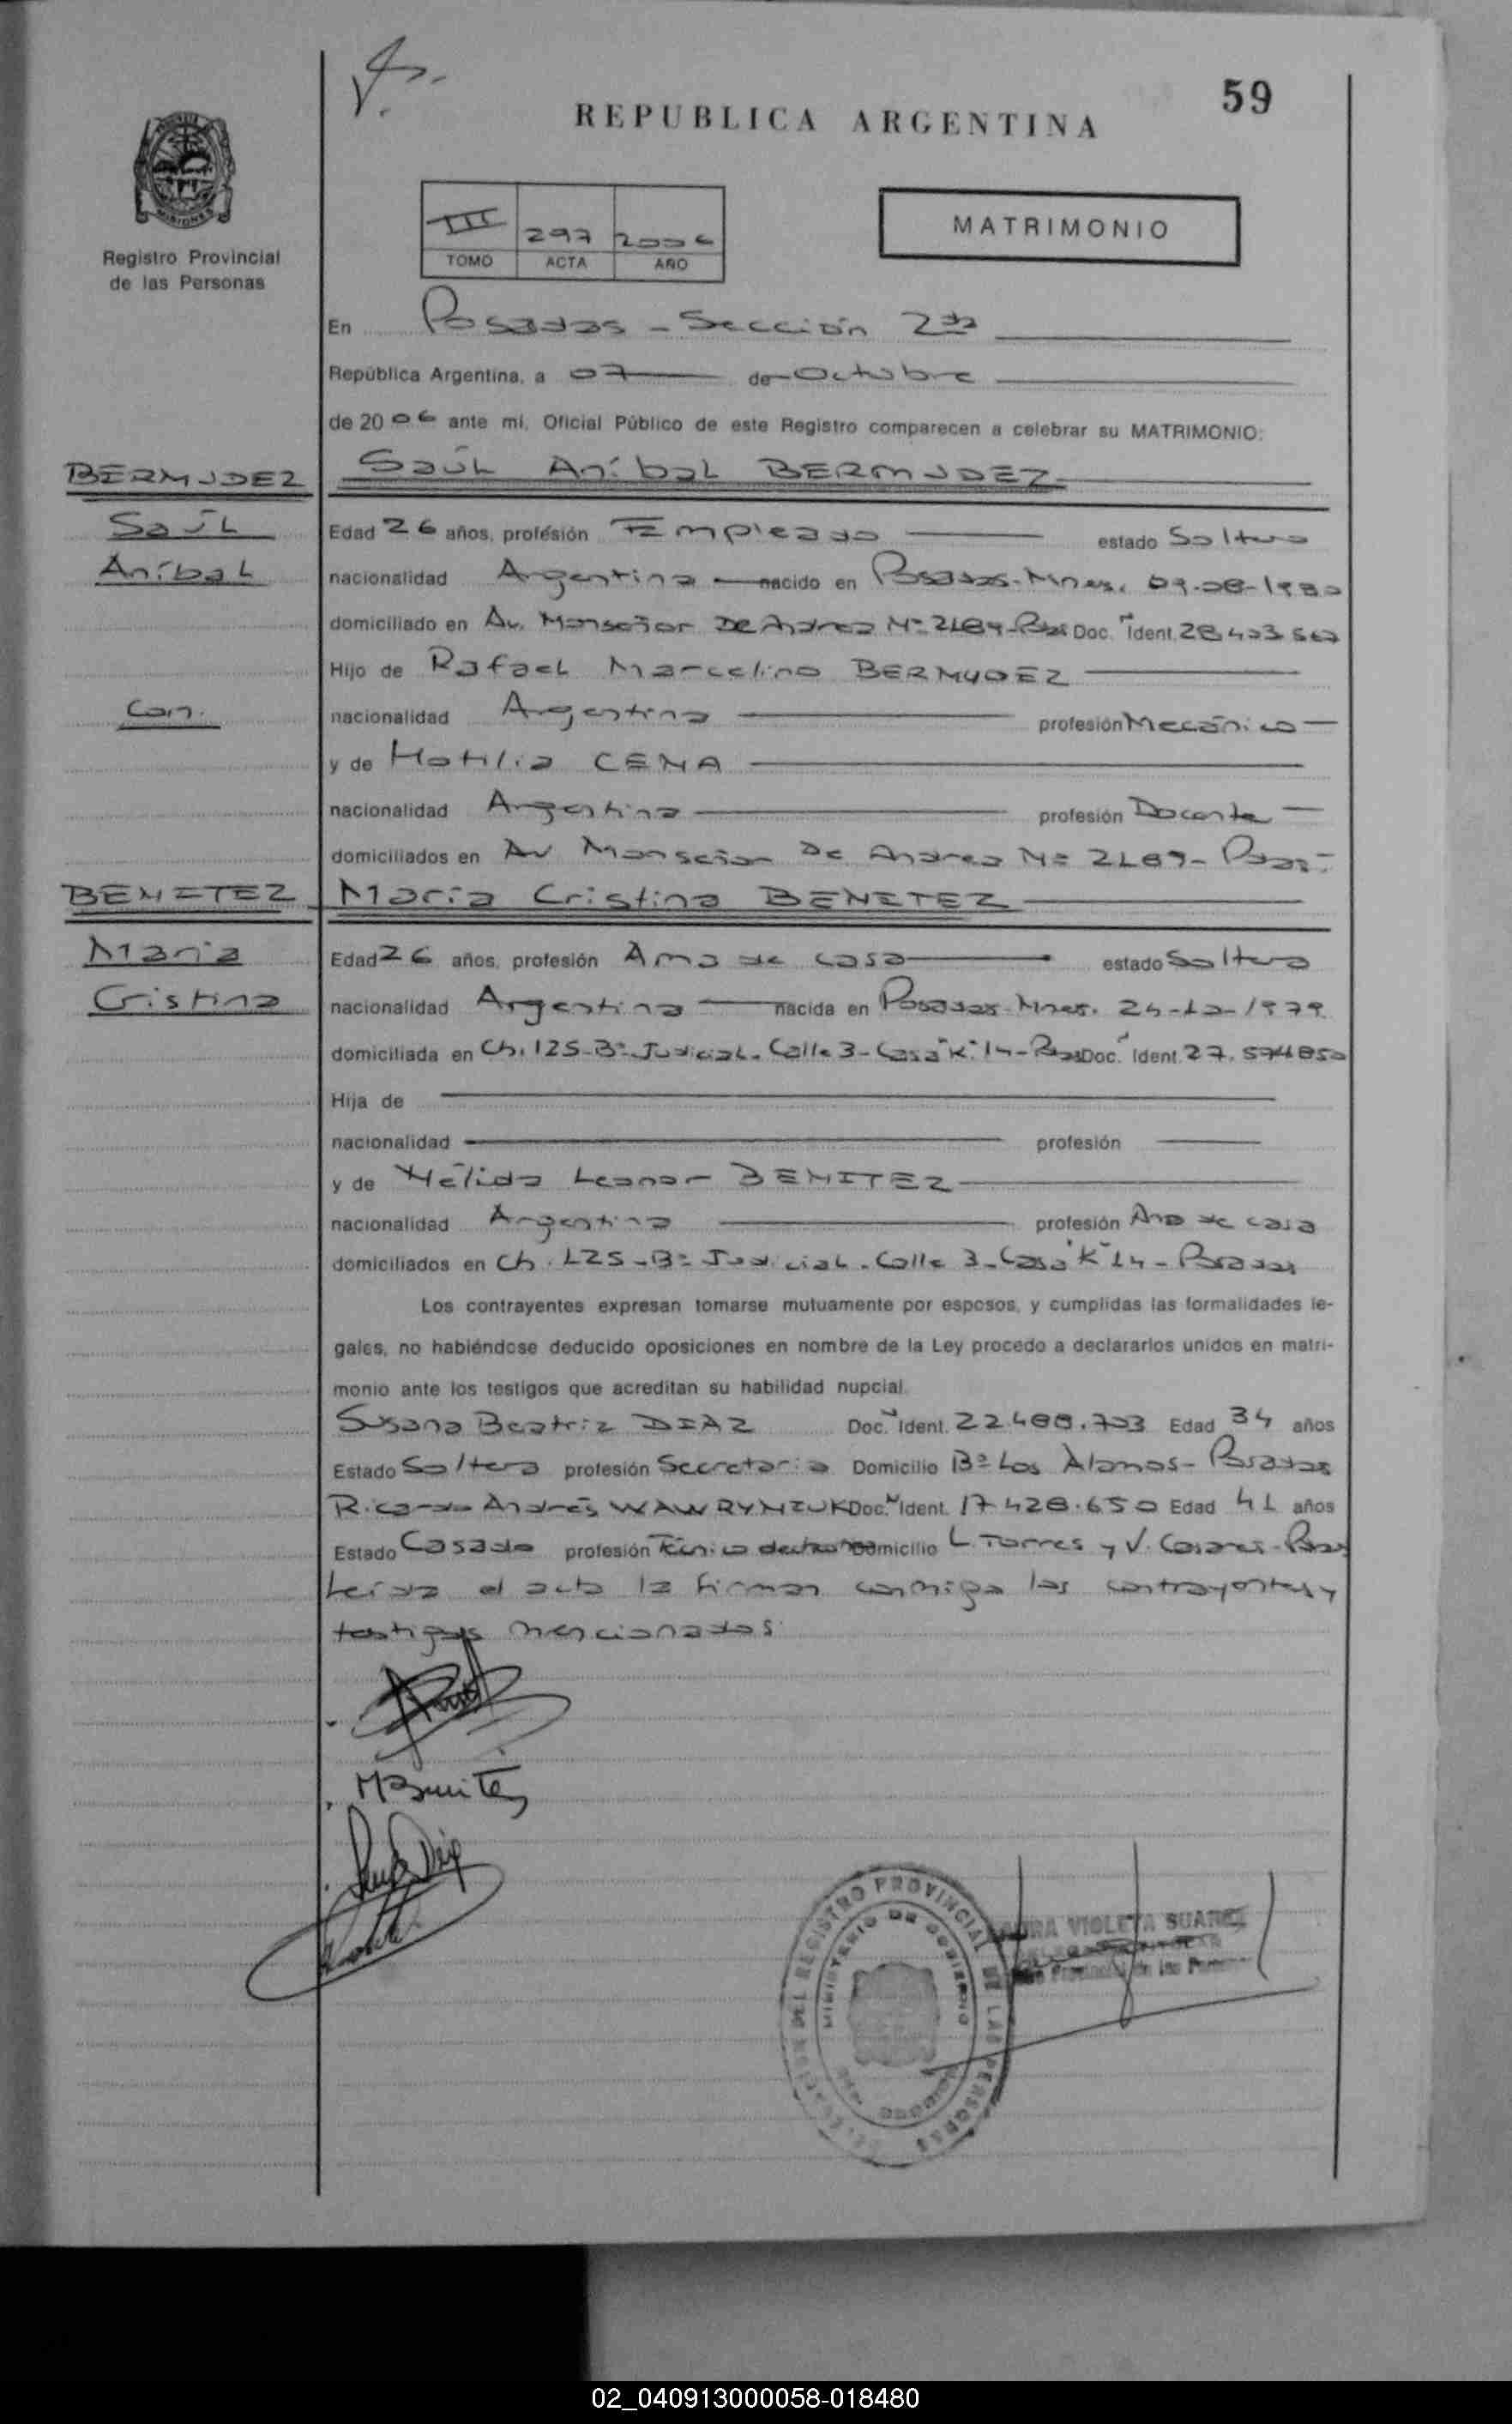 59
REPUBLICA ARGENTINA
MISIONES
Registro Provincial
de las Personas
III 297 2006
TOMO ACTA AÑO
MATRIMONIO
En Posadas - Sección 2da
República Argentina, a 07 de Octubre
de 2006 ante mi, Oficial Público de este Registro comparecen a celebrar su MATRIMONIO:
BERMUDEZ Saúl Aníbal BERMUDEZ
Saúl Edad 26 años, profesión Empleado estado Soltero
Aníbal nacionalidad Argentina nacido en Posadas-Mnes. 09-08-1980
domiciliado en Av. Monseñor De Andrea Nº 2189-Pdas Doc. Ident. 28.403.
Hijo de Rafael Marcelino BERMUDEZ
Con. nacionalidad Argentina profesión Mecánico
y de Hotilia CENA
nacionalidad Argentina profesión Docente
domiciliados en Av Monseñor De Andrea Nº 2189- Pdas.
BENITEZ María Cristina BENITEZ
María Edad 26 años, profesión Ama de casa estado Soltera
Cristina nacionalidad Argentina nacida en Posadas-Mnes. 24-12-1979
domiciliada en Ch. 125-Bº Judicial-Calle 3-Casa "K" 14-Pdas Doc. Ident. 27.574850
Hija de
nacionalidad profesión
y de Nélida Leonor BENITEZ
nacionalidad Argentina profesión Ama de casa
domiciliados en Ch. 125-Bº Judicial-Calle 3-Casa "K" 14-Posadas
Los contrayentes expresan tomarse mutuamente por esposos, y cumplidas las formalidades le-
gales, no habiéndose deducido oposiciones en nombre de la Ley procedo a declararlos unidos en matri-
monio ante los testigos que acreditan su habilidad nupcial.
Susana Beatriz DIAZ Doc. Ident. 22.488.703 Edad 34 años
Estado Soltera profesión Secretaria Domicilio Bº Los Alamos-Posadas
Ricardo Andrés WAWRYNIUK Doc. Ident. 17.428.650 Edad 41 años
Estado Casado profesión Técnico Domicilio L. Torres y V. Casares-Pdas
Leída el acta la firman conmigo los contrayentes y
testigos mencionados.
MBenitez
REGISTRO PROVINCIAL DE LAS PERSONAS
MINISTERIO DE GOBIERNO
VIOLETA SUAREZ
Provincial de las
02_040913000058-018480